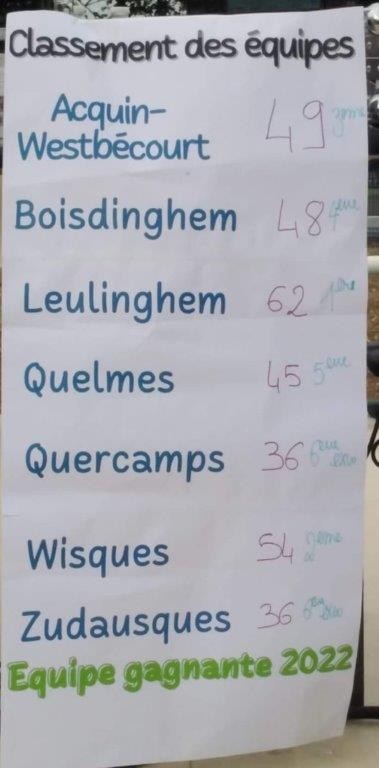 Classement des équipes
Acquin-
Westbécourt 49 3ème
Boisdinghem 48 4ème
Leulinghem 62 1ère
Quelmes 45 5ème
Quercamps 36 6ème
exo
Wisques 54 2ème
Zudausques 36
Equipe gagnante 2022